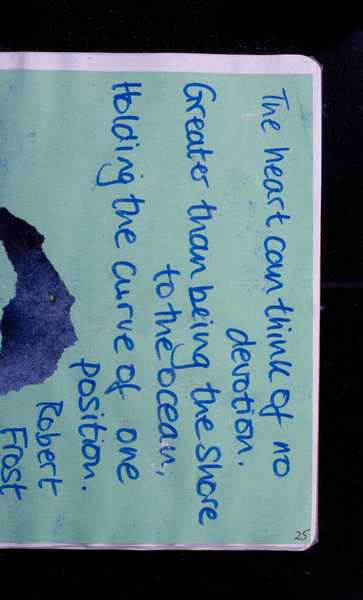 The heart can think of no
devotion.
Greater than being the shore
to the ocean,
Holding the curve of one
position.
Robert
Frost
25